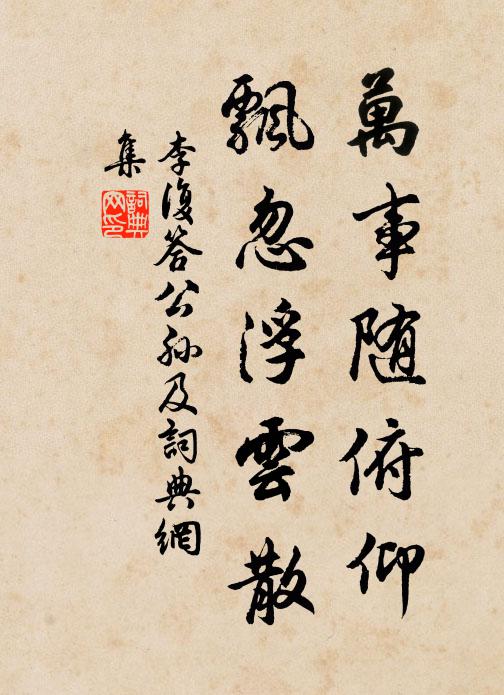 萬事随俯仰
飄忽浮雲散
李復答公孫及詞典網
集
詞典
网印